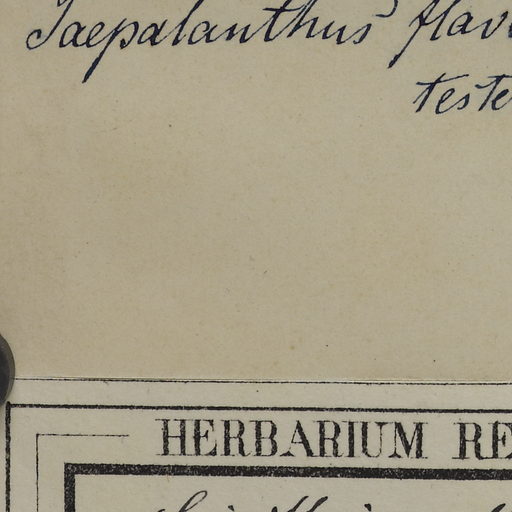 Paepalanthus flav
teste
HERBARIUM RE